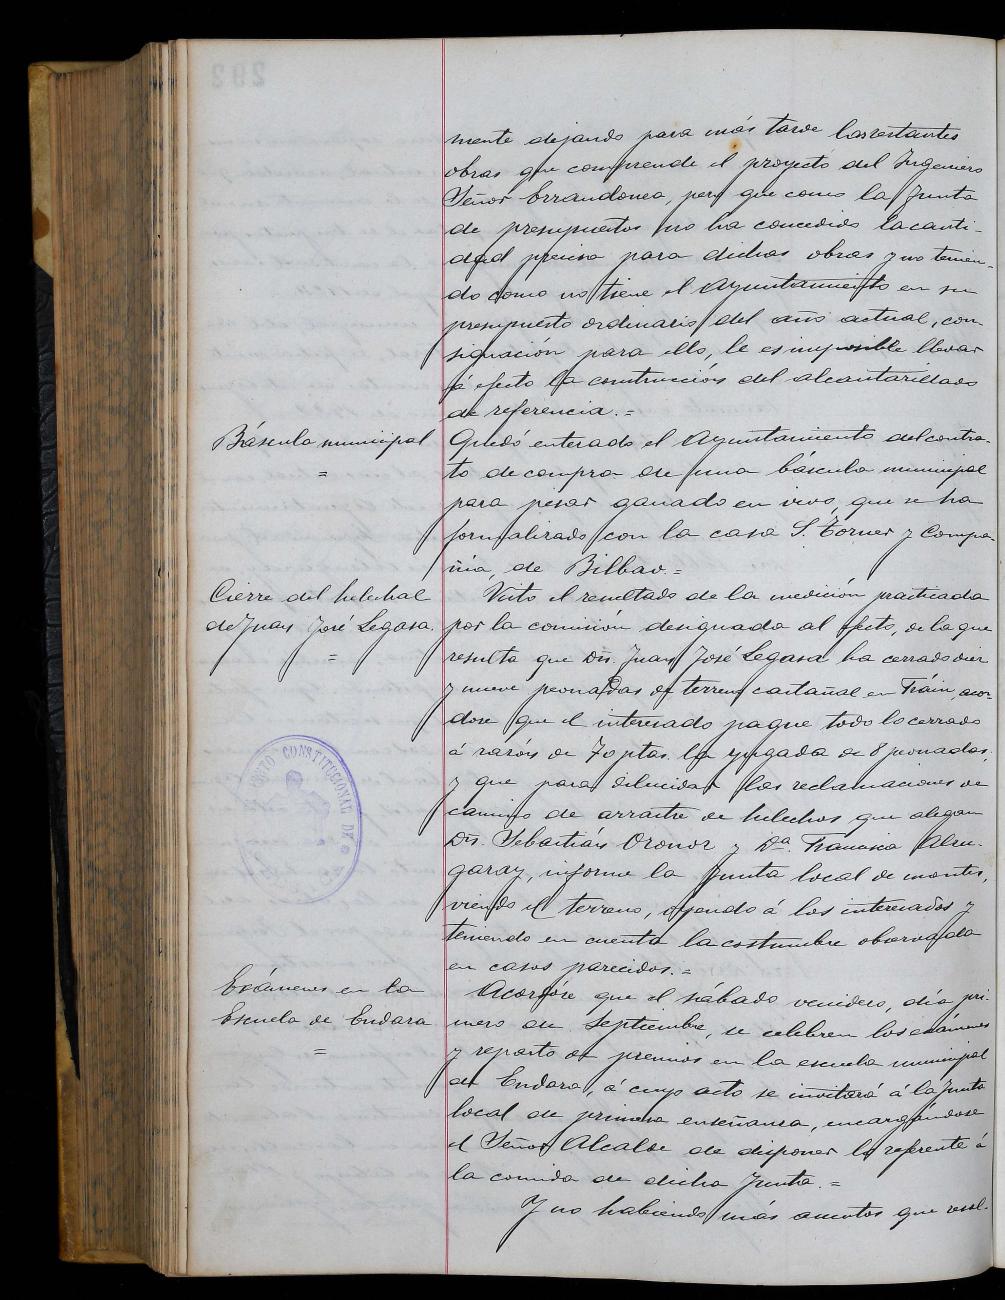 mente dejando para más tarde las restantes
obras que comprende el proyecto del Ingeniero
Señor Errandonea, pero que como la Junta
de presupuestos no ha concedido la canti-
dad precisa para dichas obras y no tenien-
do como no tiene el Ayuntamiento en su
presupuesto ordinario del año actual, con
signación para ello, le es imposible llevar
á efecto la construcción del alcantarillado
de referencia.=
Báscula municipal
=
Quedó enterado el Ayuntamiento del contra-
to de compra de una báscula municipal
para pesar ganado en vivo, que se ha
formalizado con la casa S. Torner y Compa-
ñía, de Bilbao.=
Cierre del helechal
de Juan José Legasa.
=
Visto el resultado de la medición practicada
por la comisión designada al efecto, de la que
resulta que Dn. Juan José Legasa ha cerrado diez
y nueve peonadas de terreno castañal en Frain, acor-
dose que el interesado pague todo lo cerrado
á razón de 70 ptas. la yugada de 8 peonadas,
y que para dilucidar las reclamaciones de
camino de arrastre de helechos que alegan
Dn. Sebastián Oronoz y Da. Francisca Alzu-
garay, informe la Junta local de montes,
viendo el terreno, oyendo á los interesados y
teniendo en cuenta la costumbre observada
en casos parecidos.=
Exámenes en la
Escuela de Endara
=
Acordóse que el sábado venidero, día pri-
mero de Septiembre, se celebren los exámenes
y reparto de premios en la escuela municipal
de Endara, á cuyo acto se invitará á la Junta
local de primera enseñanza, encargándose
el Señor Alcalde de disponer lo referente á
la comida de dicha Junta.=
Y no habiendo más asuntos que resol-
CONSTITUCIONAL DE